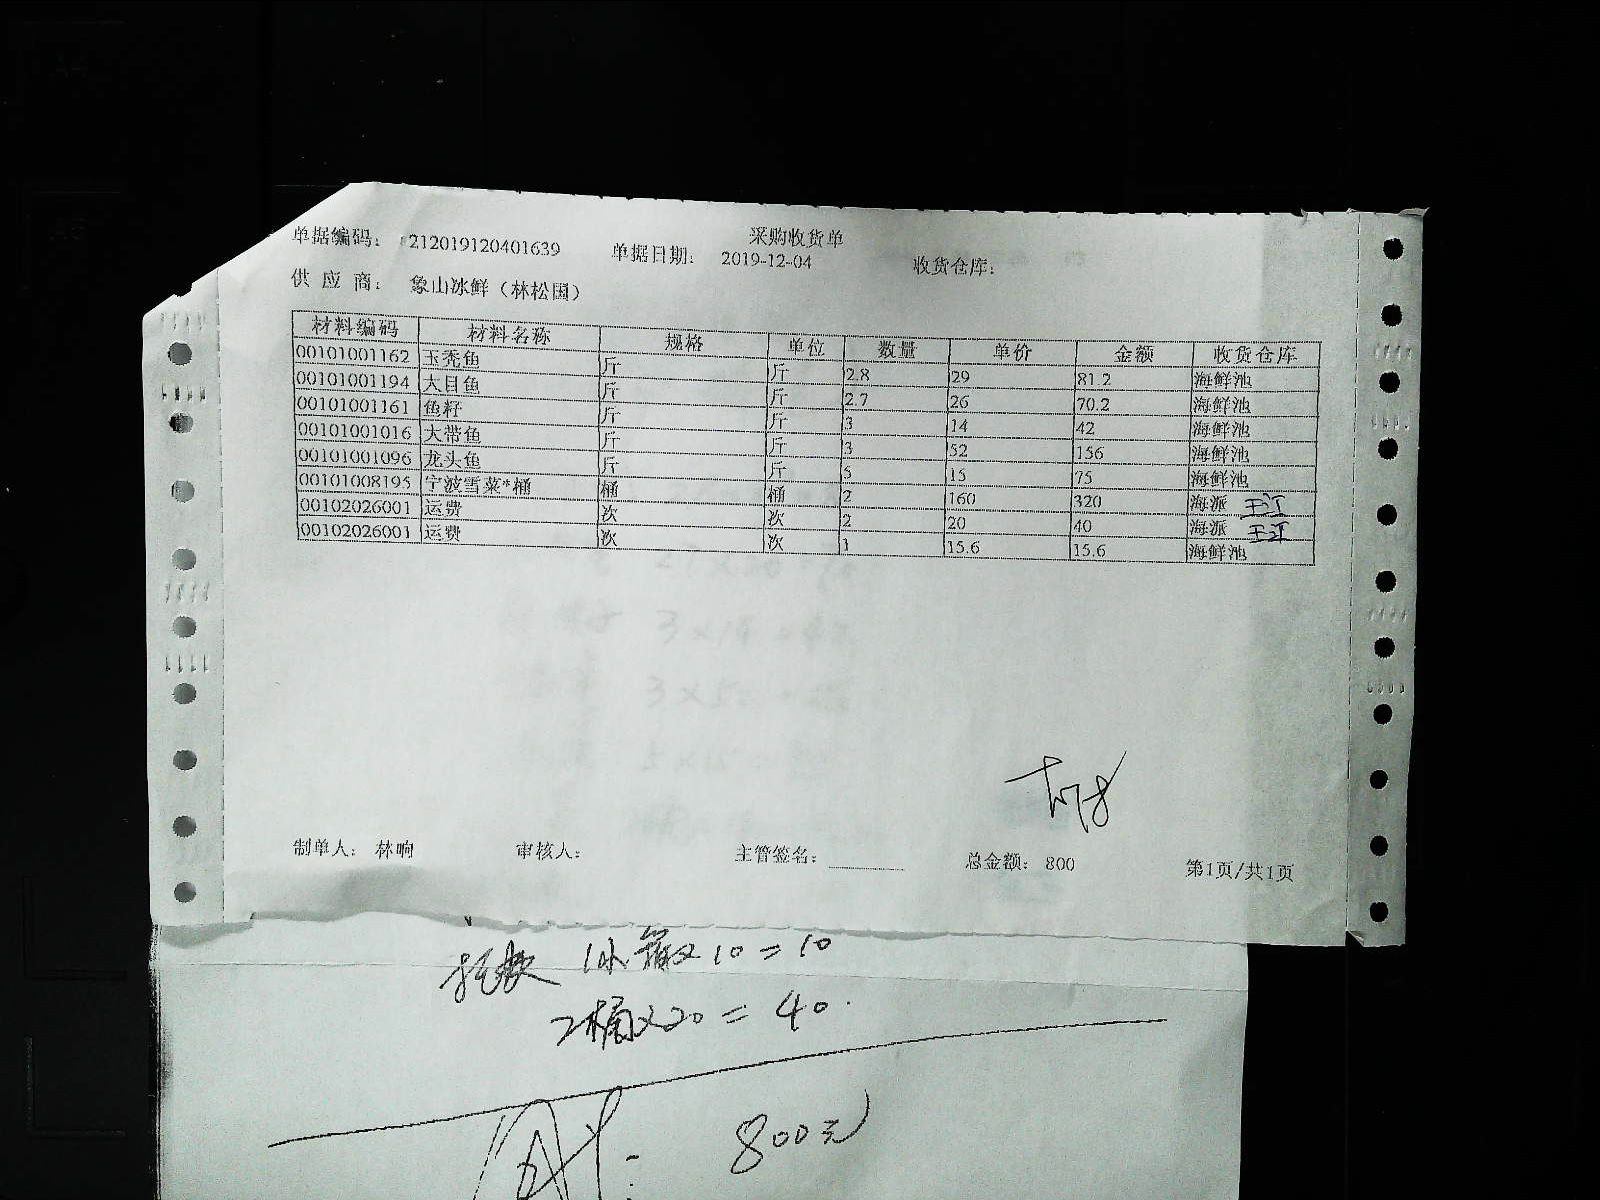 采购收货单
单据编码: 212019120401639 单据日期: 2019-12-04 收货仓库:
供 应 商: 象山冰鲜（林松国）
材料编码 材料名称 规格 单位 数量 单价 金额 收货仓库
00101001162 玉秃鱼 斤 斤 2.8 29 81.2 海鲜池
00101001194 大目鱼 斤 斤 2.7 26 70.2 海鲜池
00101001161 鱼籽 斤 斤 3 14 42 海鲜池
00101001016 大带鱼 斤 斤 3 52 156 海鲜池
00101001096 龙头鱼 斤 斤 5 15 75 海鲜池
00101008195 宁波雪菜*桶 桶 桶 2 160 320 海派 王江
00102026001 运费 次 次 2 20 40 海派 王江
00102026001 运费 次 次 1 15.6 15.6 海鲜池
制单人: 林响 审核人: 主管签名: 总金额: 800 第1页/共1页
1冰箱×10=10
2桶×20=40.
800元